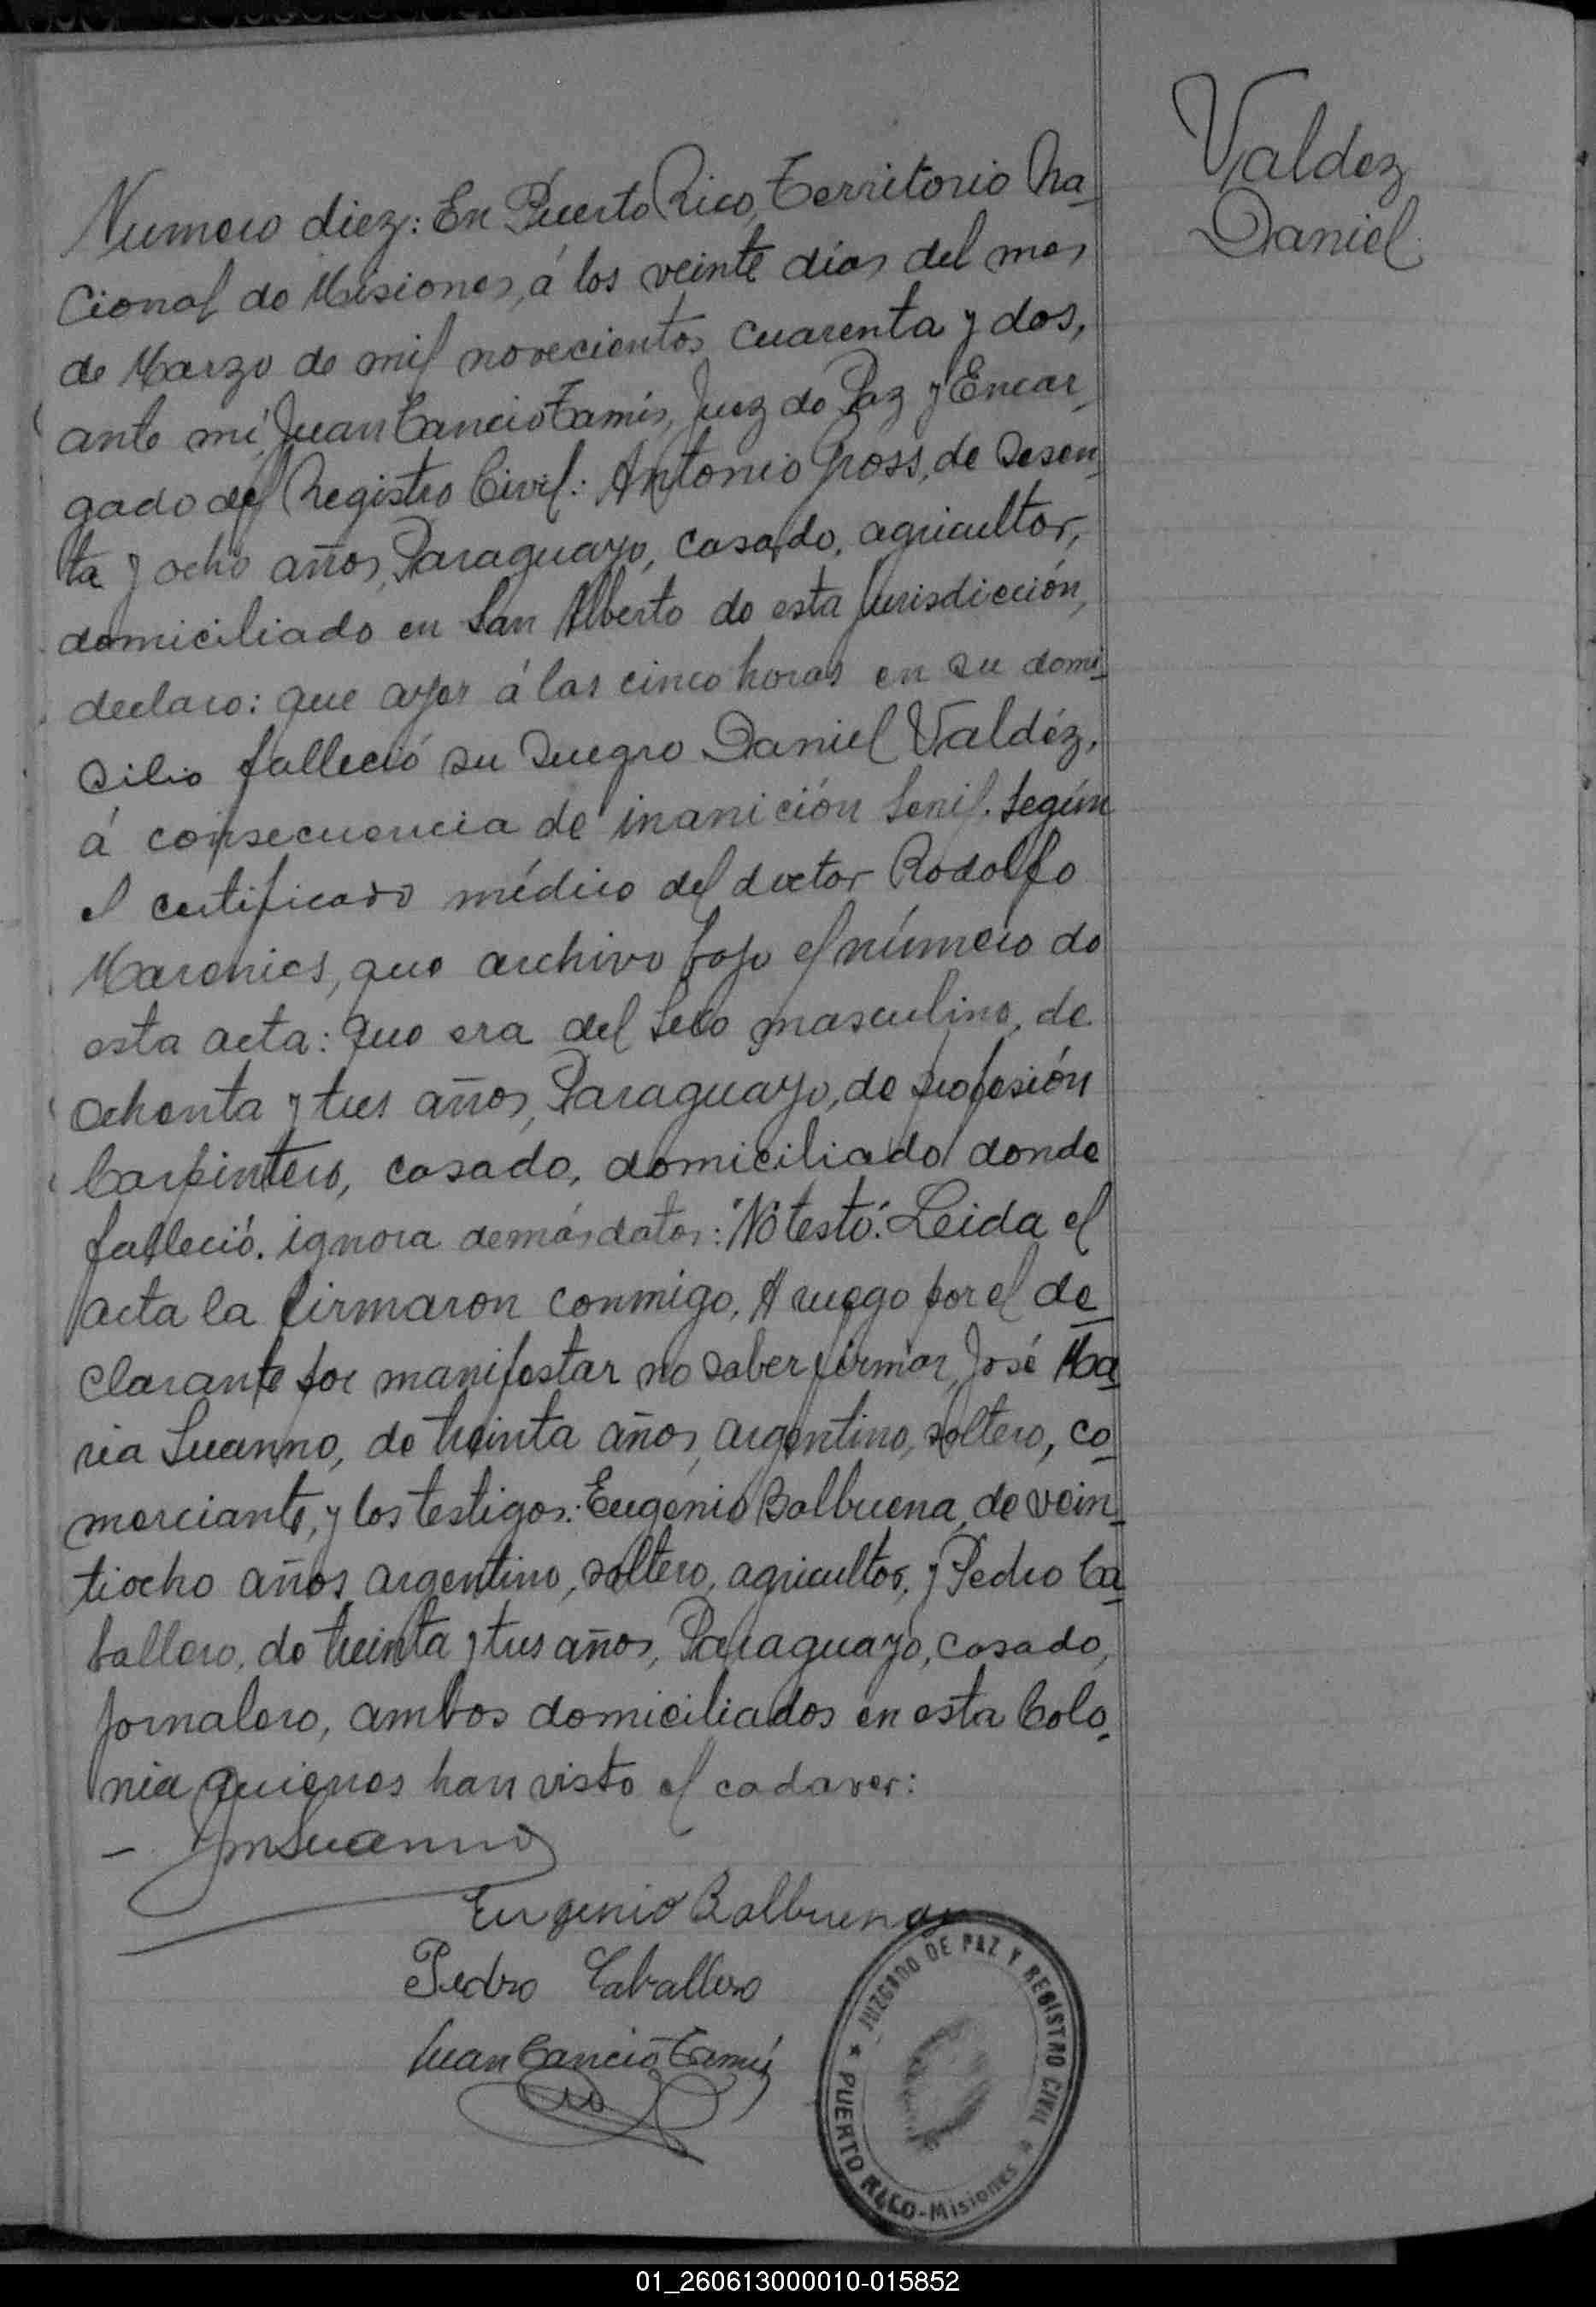 Valdez
Daniel
Numero diez: En Puerto Rico, Territorio Na-
cional de Misiones, á los veinte dias del mes
de Marzo de mil novecientos cuarenta y dos,
ante mí, Juan Cancio Tamis, Juez de Paz y Encar-
gado del Registro Civil: Antonio Gross, de sesen-
ta y ocho años, Paraguayo, casado, agricultor,
domiciliado en San Alberto de esta jurisdicción,
declaro: que ayer á las cinco horas en su domi-
silio falleció su suegro Daniel Valdéz,
á consecuencia de inanición senil. Según
el certificado médico del doctor Rodolfo
que archivo bajo el número de
esta acta: que era del sexo masculino, de
ochenta y tres años, Paraguayo, de profesión
Carpintero, casado, domiciliado donde
falleció. ignora demás datos: "No testó". Leida el
acta la firmaron conmigo, A ruego por el de-
clarante por manifestar no saber firmar, José Ma-
ria Suanno, de treinta años, argentino, soltero, co-
merciante, y los testigos: Eugenio Balbuena, de vein-
tiocho años, argentino, soltero, agricultor, y Pedro Ca-
ballero, de treinta y tres años, Paraguayo, casado,
jornalero, ambos domiciliados en esta Colo-
nia quienes han visto el cadaver:
JMSuanno
Eugenio Balbuena
Pedro Caballero
Juan Cancio Tamis
JUZGADO DE PAZ Y REGISTRO CIVIL
PUERTO RICO - Misiones
01_260613000010-015852